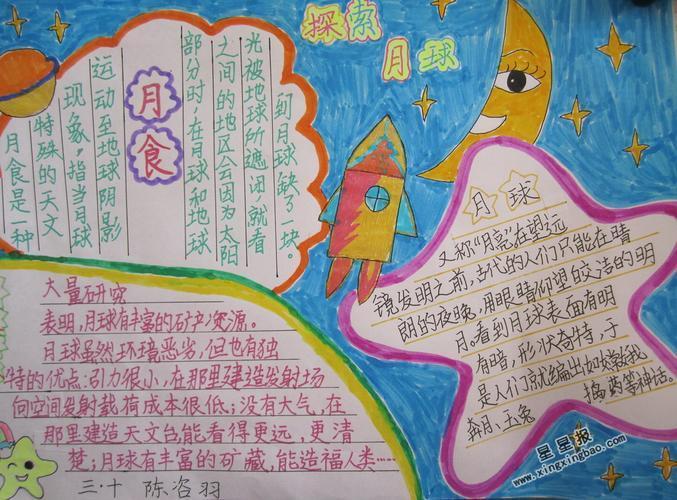 探索
月球
月食
月食是一种
特殊的天文
现象。指当月球
运动至地球阴影
部分时,在月球和地球
之间的地区会因为太阳
光被地球所遮闭,就看
到月球缺了一块。
月球
又称"月亮"在望远
镜发明之前,古代的人们只能在晴
朗的夜晚,用眼睛仰望皎洁的明
月。看到月球表面有明
有暗,形状奇特,于
是人们就编出如嫦娥
奔月、玉兔 捣药等神话。
大量研究
表明,月球有丰富的矿产资源。
月球虽然环境恶劣,但也有独
特的优点:引力很小,在那里建造发射场
向空间发射载荷成本很低;没有大气,在
那里建造天文台能看得更远,更清
楚;月球有丰富的矿藏,能造福人类……
三·十 陈咨羽
星星报
www.xingxingbao.com